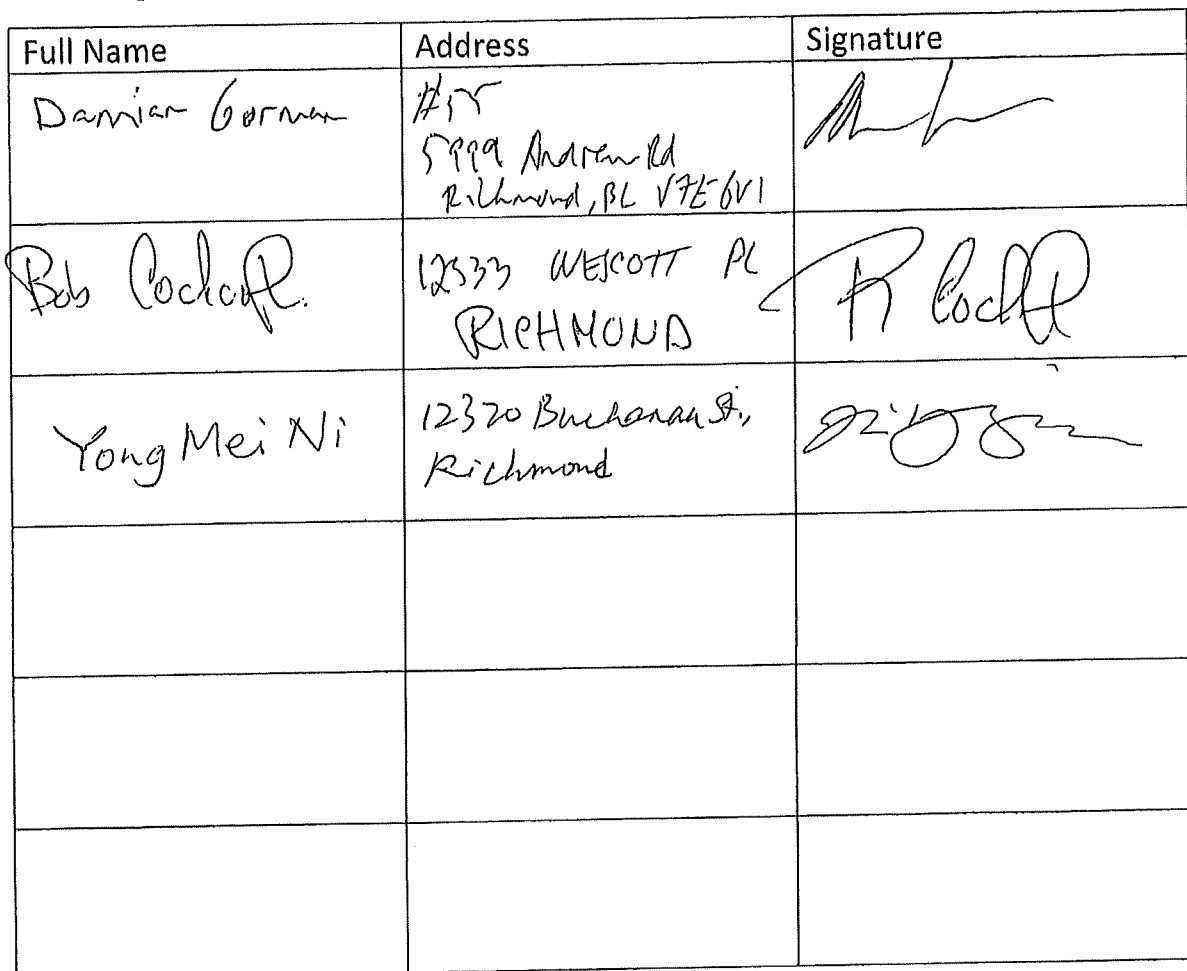 Full Name Address Signature
Damian Gorman
#55
5999 Andrews Rd
Richmond, BC V7E 6V1
Bob Cockcroft.
12333 WESCOTT PL
RICHMOND
R Cockcroft
Yong Mei Ni
12320 Buchanan St.,
Richmond